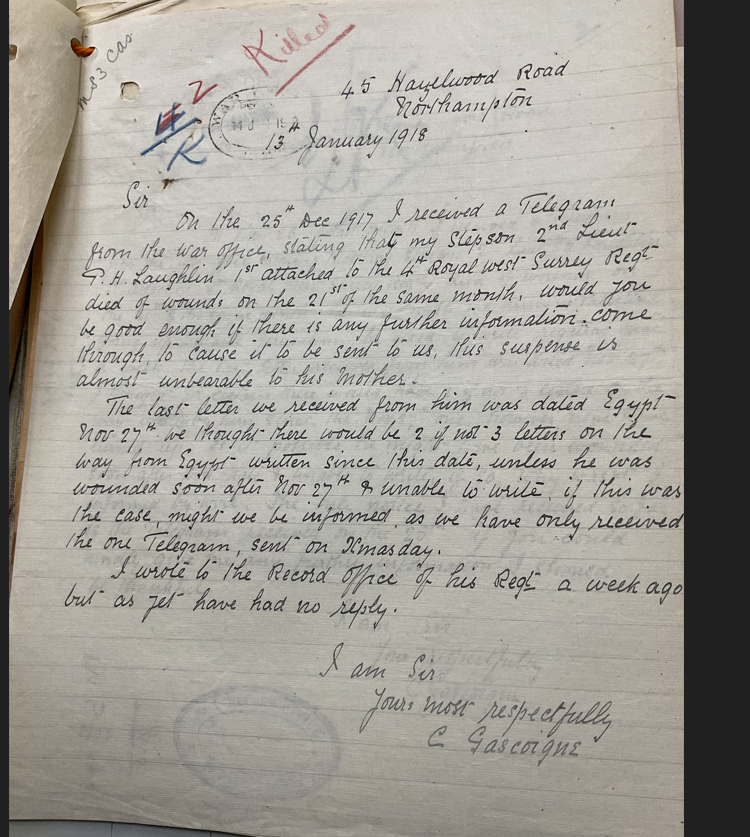 Killed
MS3 Cas
2
4/R
45 Hazelwood Road
Northampton
13th January 1918
Sir
On the 25th Dec 1917 I received a Telegram
from the War office, stating that my Stepson 2nd Lieut
P. H. Laughlin 1st attached to the 4th Royal West Surrey Regt
died of wounds on the 21st of the same month. would you
be good enough if there is any further information come
through to cause it to be sent to us, this suspense is
almost unbearable to his Mother.
The last letter we received from him was dated Egypt
Nov 27th we thought there would be 2 if not 3 letters on the
way from Egypt written since this date, unless he was
wounded soon after Nov 27th & unable to write, if this was
the case, might we be informed, as we have only received
the one Telegram, sent on Xmasday.
I wrote to the Record office of his Regt a week ago
but as yet have had no reply.
I am Sir
Yours most respectfully
C Gascoigne